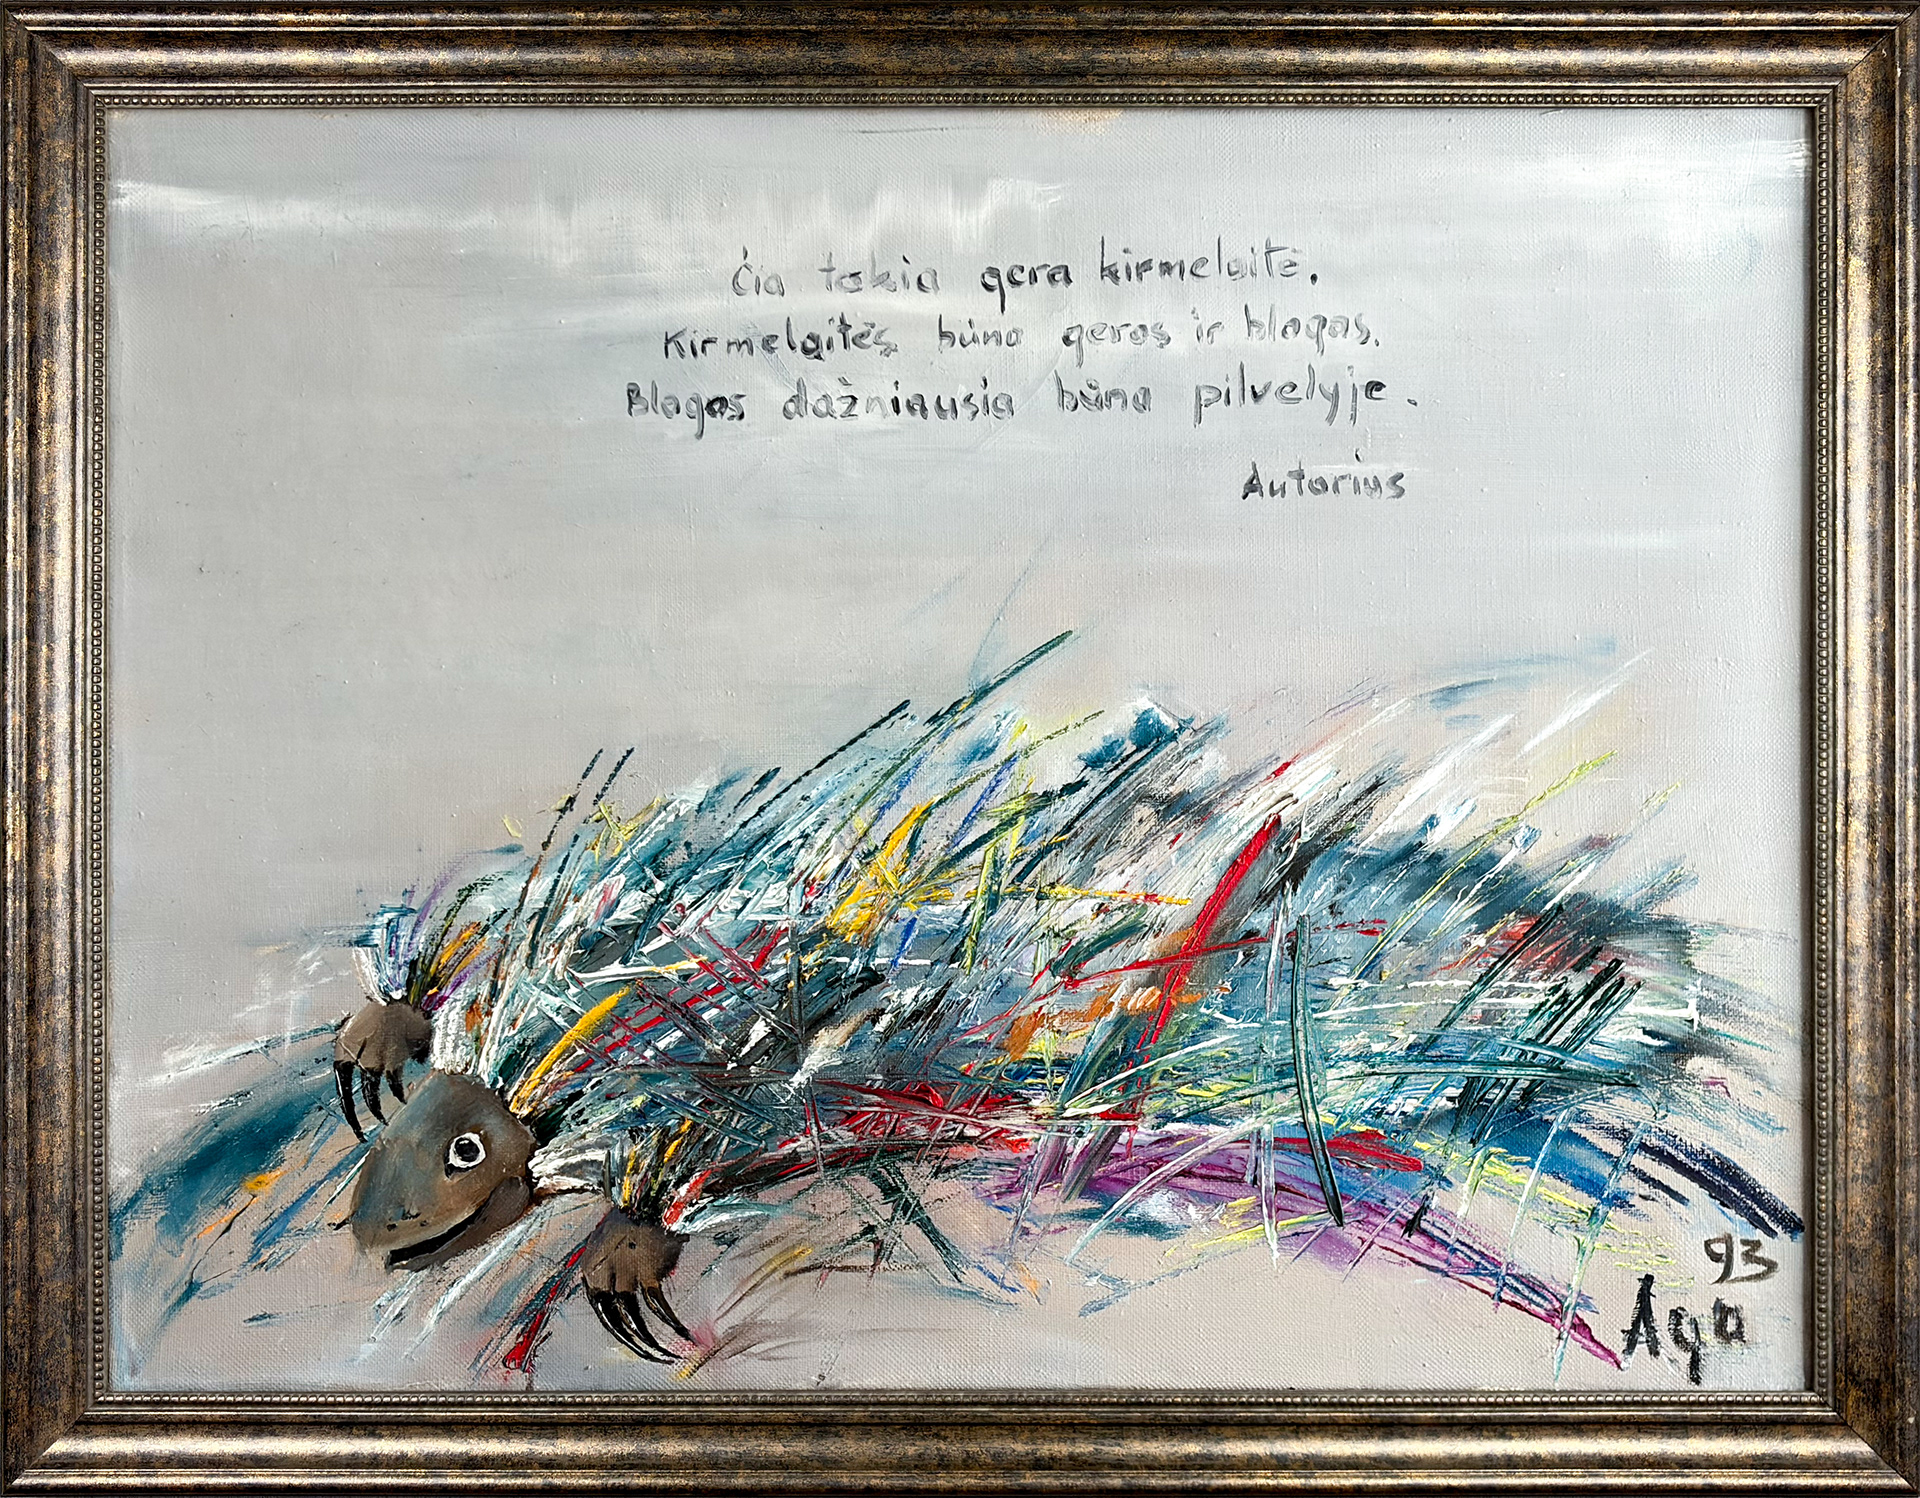 Čia tokia gera kirmelaitė.
Kirmelaitės būna geros ir blogos.
Blogos dažniausia būna pilvelyje.
Autorius
93
Aga